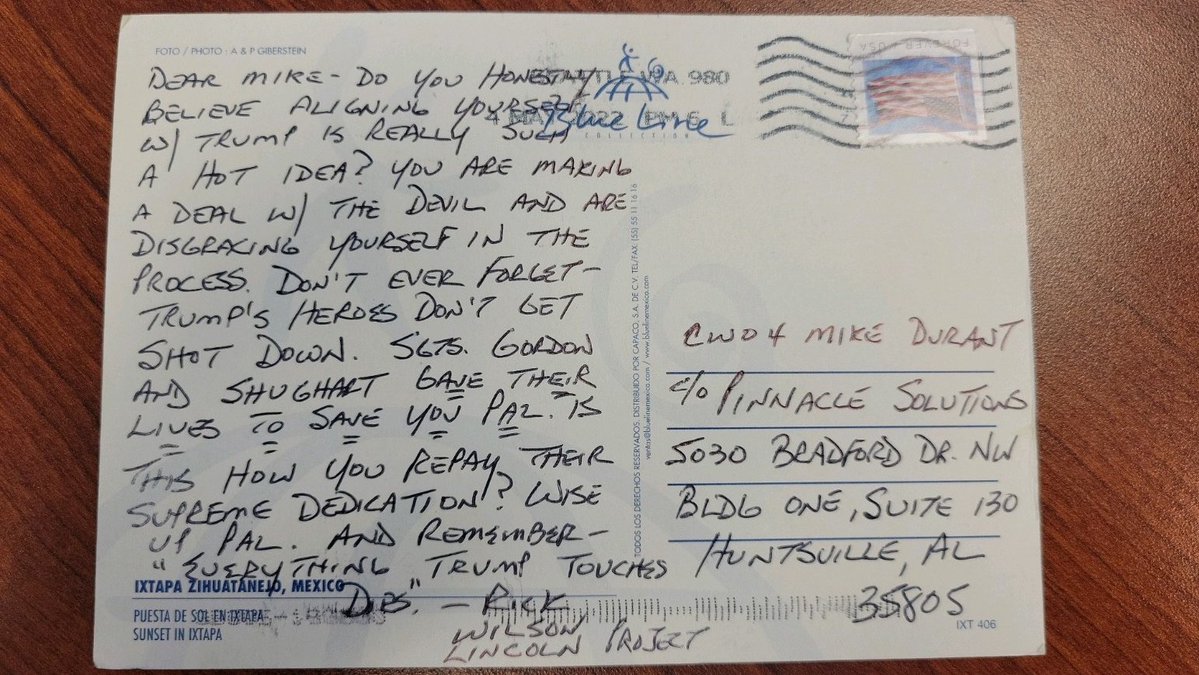 FOTO / PHOTO · A & P GIBERSTEIN
DEAR MIKE - DO YOU HONESTLY
BELIEVE ALIGNING YOURSELF
W/ TRUMP IS REALLY SUCH
A HOT IDEA? YOU ARE MAKING
A DEAL W/ THE DEVIL AND ARE
DISGRACING YOURSELF IN THE
PROCESS. DON'T EVER FORGET -
TRUMP'S HEROES DON'T GET
SHOT DOWN. SGTS. GORDON
AND SHUGHART GAVE THEIR
LIVES TO SAVE YOU PAL. IS
THIS HOW YOU REPAY THEIR
SUPREME DEDICATION? WISE
UP PAL. AND REMEMBER -
"EVERYTHING TRUMP TOUCHES
DIES." - RICK
WILSON
LINCOLN PROJECT
IXTAPA ZIHUATANEJO, MEXICO
PUESTA DE SOL EN IXTAPA
SUNSET IN IXTAPA
SEATTLE WA 980
2022 PM 6 L
Blue Line
COLLECTION
FOREVER USA
TODOS LOS DERECHOS RESERVADOS. DISTRIBUIDO POR CAPACO, S.A. DE C.V. TEL/FAX (55) 55 11 16 16
ventas@bluelinemexico.com / www.bluelinemexico.com
CWO4 MIKE DURANT
c/o PINNACLE SOLUTIONS
5030 BRADFORD DR. NW
BLDG ONE, SUITE 130
HUNTSVILLE, AL
35805
IXT 406